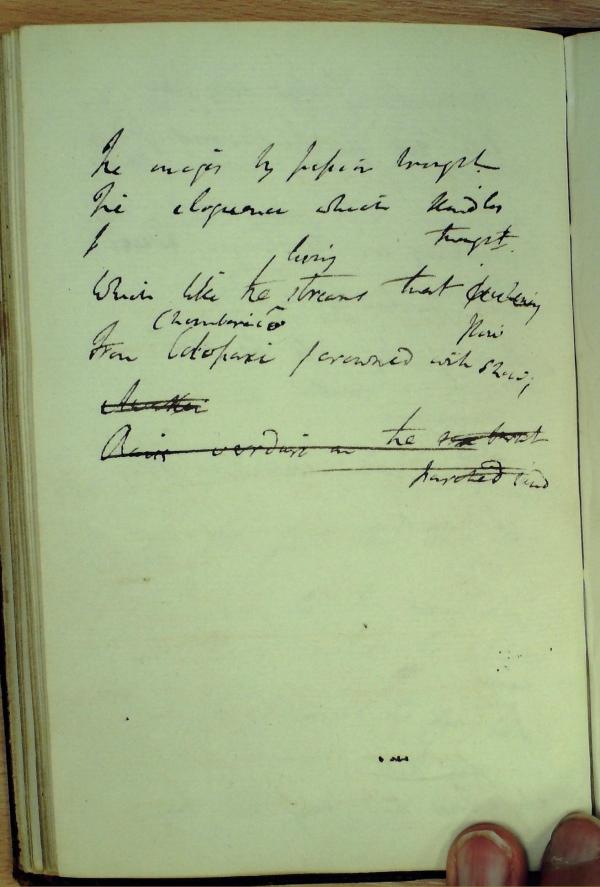 The images by passion wrought
The eloquence which kindles
thought.
living
Which like the streams that
Chimborazo
From Cotopaxi crowned with snow,
Rain verdure on the sunburnt
parched land